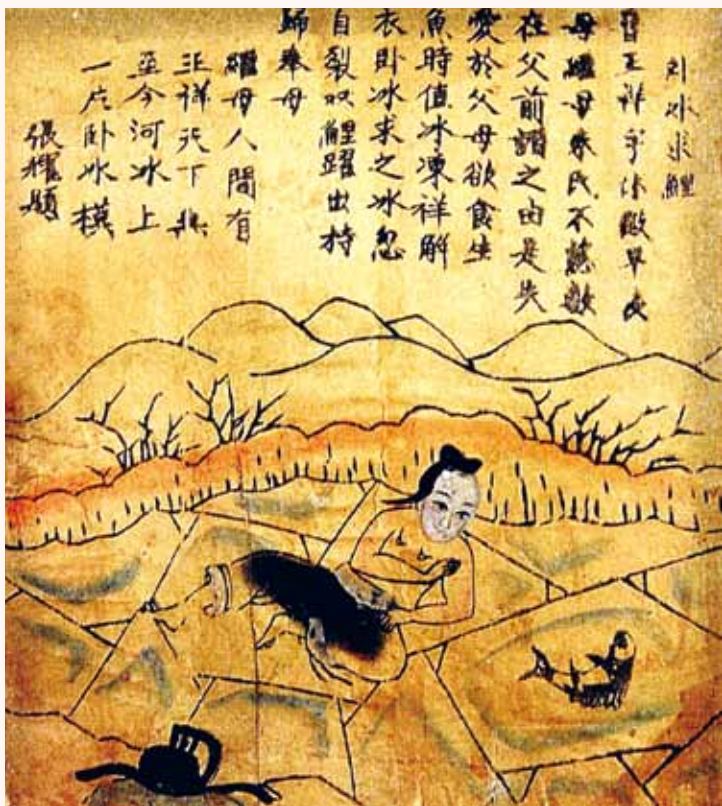 卧冰求鯉
晉王祥字休徵早喪
母繼母朱氏不慈數
在父前譖之由是失
愛於父母欲食生
魚時值冰凍祥解
衣卧冰求之冰忽
自裂双鯉躍出持
歸奉母
繼母人間有
王祥天下無
至今河冰上
一片卧冰模
張題